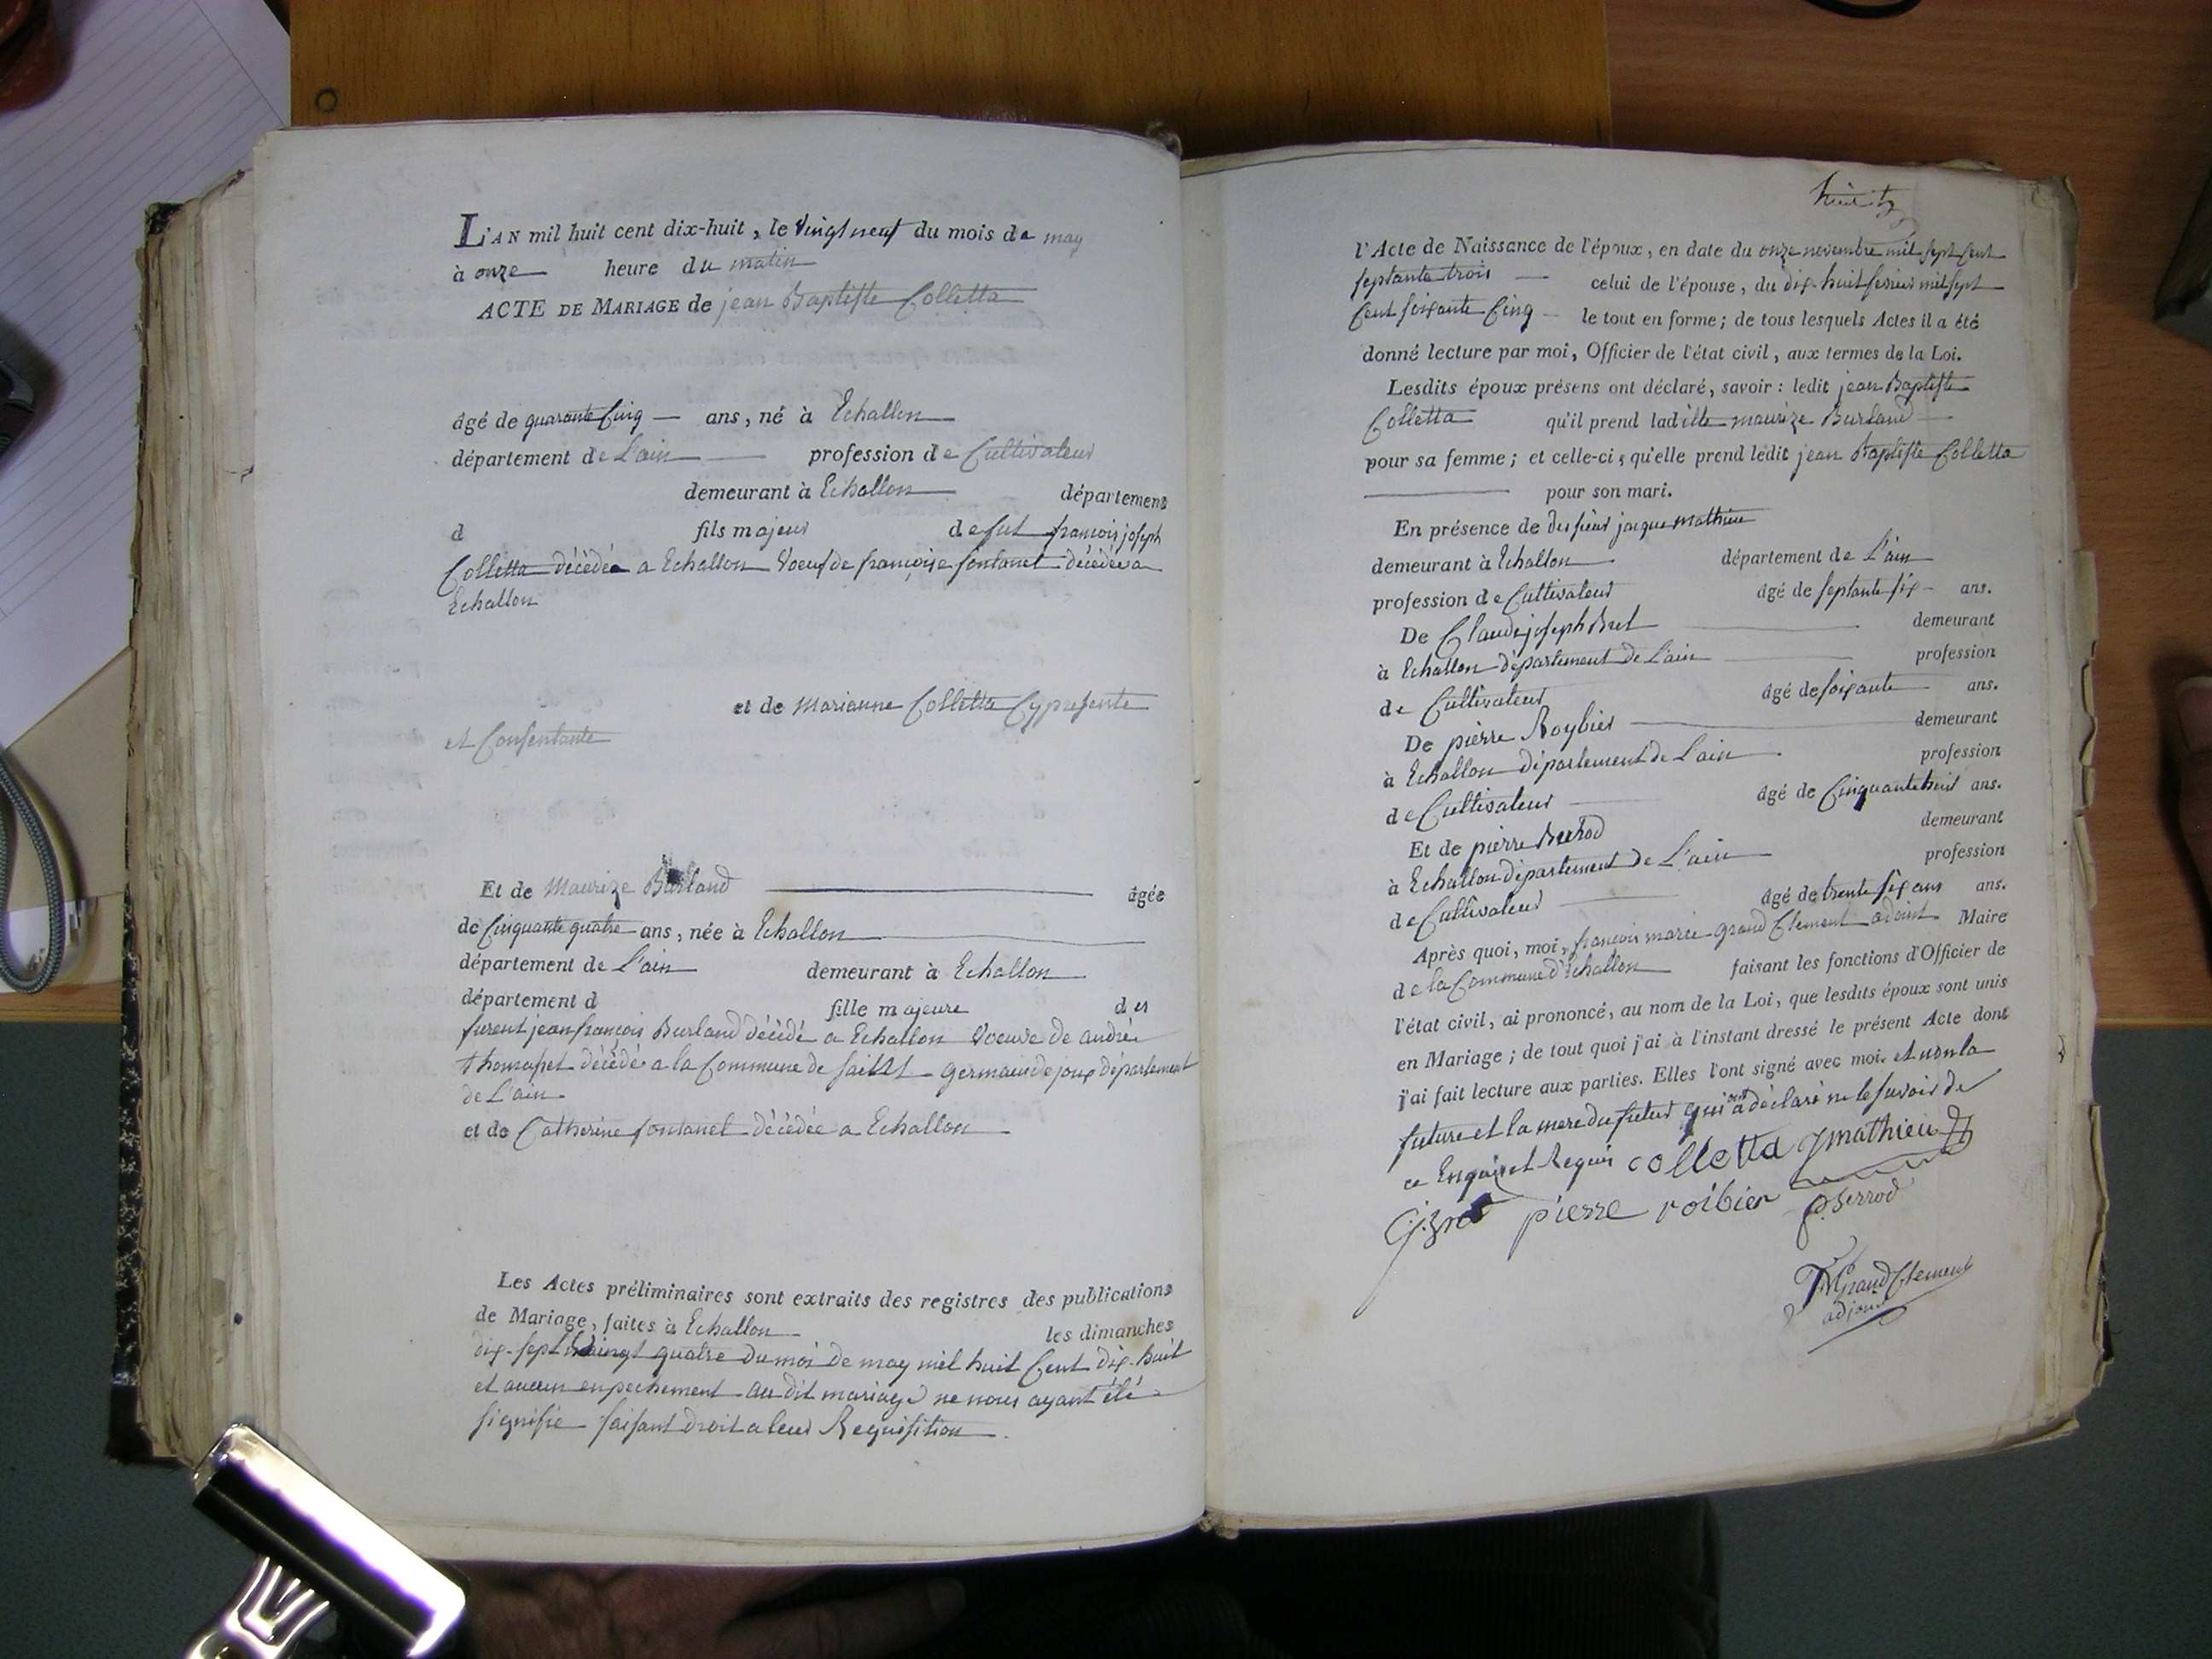 L'AN mil huit cent dix-huit, le vingt neuf du mois de may
à onze heure du matin
ACTE DE MARIAGE de jean Baptiste Colletta
âgé de quarante Cinq ans, né à Echallon
département de L'ain profession de Cultivateur
demeurant à Echallon département
d fils majeur de fut françois joseph
Colletta décédée a Echallon Voeuf de françoise fontanel décédée a
Echallon
et de Marianne Colletta Cy presente
et Consentante
Et de Maurize Burland âgée
de Cinquante quatre ans, née à Echallon
département de L'ain demeurant à Echallon
département d fille majeure des
furent jean françois Burland décédé a Echallon Voeuve de andré
thomasset décédé a la Commune de saint germain de joux département
de L'ain
et de Catherine fontanel décédée a Echallon
Les Actes préliminaires sont extraits des registres des publications
de Mariage, faites à Echallon les dimanches
dix-sept vingt quatre du moi de may mil huit Cent dix-huit
et aucun enpechement au dit mariage ne nous ayant été
signifié faisant droit a leur Requisition
huit
l'Acte de Naissance de l'époux, en date du onze novembre mil sept Cent
septante trois celui de l'épouse, du dix-huit fevrier mil sept
Cent soixante Cinq le tout en forme; de tous lesquels Actes il a été
donné lecture par moi, Officier de l'état civil, aux termes de la Loi.
Lesdits époux présens ont déclaré, savoir: ledit jean Baptiste
Colletta qu'il prend laditte maurize Burland
pour sa femme; et celle-ci, qu'elle prend ledit jean Baptiste Colletta
pour son mari.
En présence de du sieur jacque mathieu
demeurant à Echallon département de L'ain
profession de Cultivateur âgé de septante six ans.
De Claude joseph Bret demeurant
à Echallon département de L'ain profession
de Cultivateur âgé de soixante ans.
De pierre Roybier demeurant
à Echallon département de L'ain profession
de Cultivateur âgé de Cinquante huit ans.
Et de pierre Berrod demeurant
à Echallon département de L'ain profession
de Cultivateur âgé de trente six ans ans.
Après quoi, moi, françois marie grand Clement adoint Maire
de la Commune d'Echallon faisant les fonctions d'Officier de
l'état civil, ai prononcé, au nom de la Loi, que lesdits époux sont unis
en Mariage; de tout quoi j'ai à l'instant dressé le présent Acte dont
j'ai fait lecture aux parties. Elles l'ont signé avec moi. et non la
future et la mere du futur qui ont déclaré ne le savoir de
ce Enquis et Requis colletta J mathieu
C j Bret pierre roibier P Berrod
F M Grand Clement
adjoint